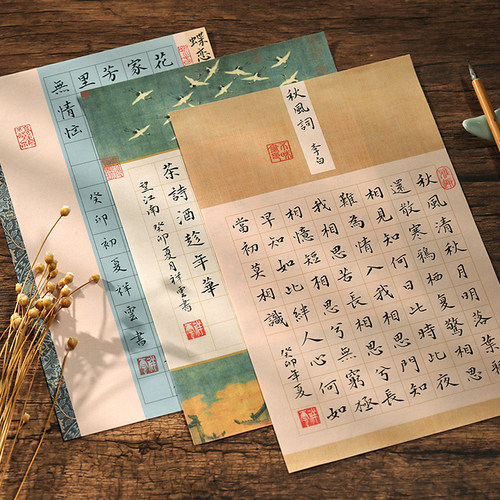 秋風詞
李白
秋風清秋月明落葉
還散寒鴉栖復驚相思
相見知何日此時此夜
難為情入我相思門知
我相思苦長相思兮長
相憶短相思兮無窮極
早知如此絆人心何如
當初莫相識
癸卯年夏
茶詩酒趁年華
望江南 癸卯夏月祥雲書
蝶恋
花
家
芳
里
無情恼
癸卯初夏祥雲書